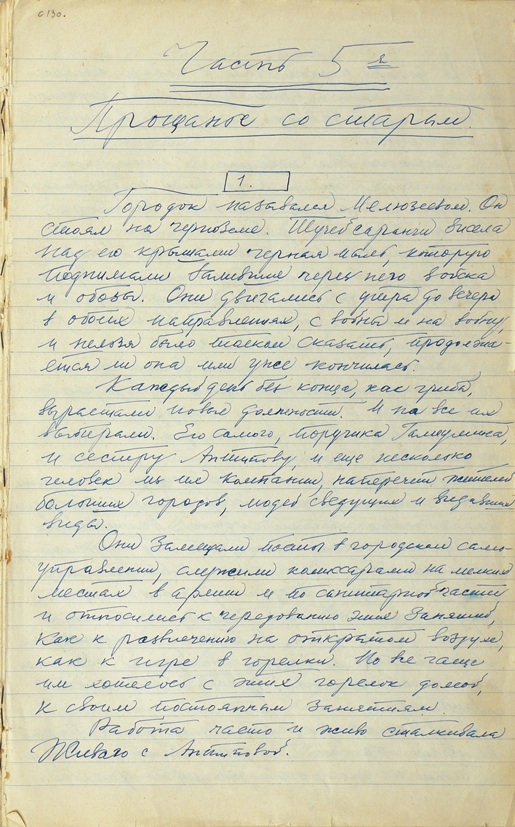 с 130.
Часть 5я
Прощанье со старым.
1.
Городок назывался Мелюзеевом. Он
стоял на черноземе. Тучей саранчи висела
над его крышами черная пыль, которую
поднимали валившие через него войска
и обозы. Они двигались с утра до вечера
в обоих направлениях, с войны и на войну,
и нельзя было толком сказать, продолжа-
ется ли она или уже кончилась.
Каждый день без конца, как грибы,
вырастали новые должности. И на все их
выбирали. Его самого, поручика Галиуллина,
и сестру Антипову, и еще несколько
человек из их компании, наперечет жителей
больших городов, людей сведущих и видавших
виды.
Они замещали посты в городском само-
управлении, служили комиссарами на мелких
местах в армии и по санитарной части
и относились к чередованию этих занятий,
как к развлечению на открытом воздухе,
как к игре в горелки. Но все чаще
им хотелось с этих горелок домой,
к своим постоянным занятиям.
Работа часто и живо сталкивала
Живаго с Антиповой.